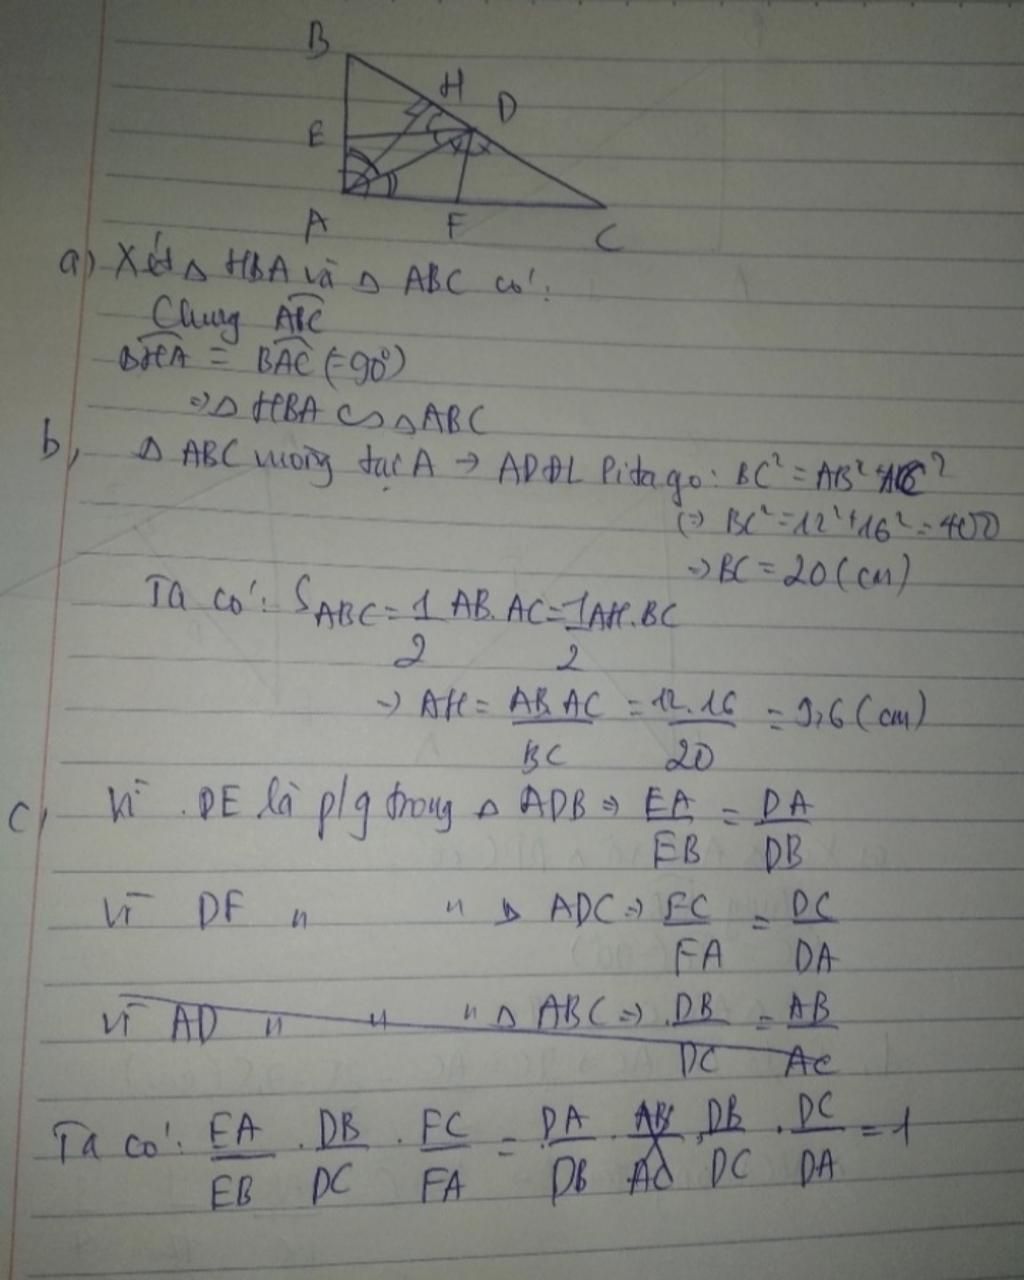 B
H
D
E
A
F
C
a) Xét Δ HBA và Δ ABC có:
Chung ABC
BHA = BAC (=90°)
=> Δ HBA ∽ Δ ABC
b, Δ ABC vuông tại A → ADĐL Pitago: BC² = AB² + AC²
(=> BC² = 12² + 16² = 400
=> BC = 20 (cm)
Ta có: S ABC = 1/2 AB. AC = 1/2 AH. BC
→ AH = AB. AC / BC = 12. 16 / 20 = 9,6 (cm)
c, Vì DE là p/g trong Δ ADB => EA/EB = DA/DB
Vì DF " " Δ ADC => FC/FA = DC/DA
Vì AD " " " Δ ABC => DB/DC = AB/AC
Ta có: EA/EB . DB/DC . FC/FA = DA/DB . AB/AC . DB/DC . DC/DA = 1